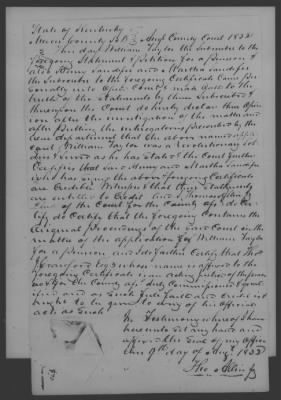 State of Kentucky
Mercer County Sct August County Court 1832
This day William Taylor the Subscriber to the
foregoing Statement & petition for a pension &
also Henry Sandifer and Martha Sandifer
the Subscribers to the foregoing Certificate Came per
sonally into Open Court & made Oath to the
truth of the Statements by them Subscribed &
thereupon the Court do hereby declare their Opin
ion after the investigation of the matter and
after putting the interrogatories prescribed by the
War Department that the above named appli
cant William Taylor was a revolutionary Sol
dier & served as he has stated & the Court further
Certifies that Henry and Martha Sandifer
who has signed the above & foregoing Certificate
are Credible Witnesses & that their Statements
are entitled to Credit and I Thomas Allin
Clerk of the Court for the County aforesaid do
hereby Certify that the foregoing Contains the
Original Proceedings of the said Court in the
matter of the application for William Taylor
for a pension and do further Certify that
whose name is affixed to the
foregoing Certificate is an acting Justice of the peace
in & for the County afsd duly Commissioned & quali
fied and as such full faith and Credit is &
ought to be given to all of his Official
acts as such
In Testimony whereof I have
hereunto set my hand and
affixed the Seal of my Office
this 9th day of Aug 1832
Tho Allin